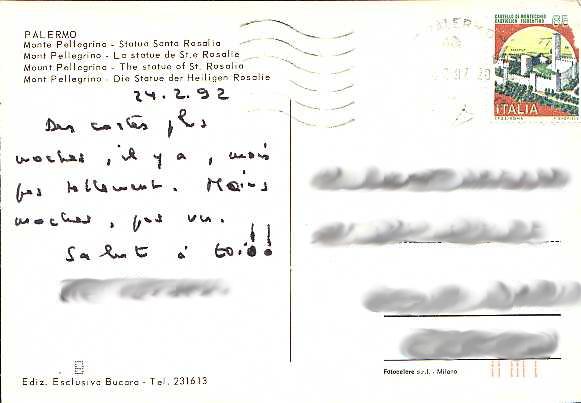 PALERMO
Monte Pellegrino - Statua Santa Rosalia
Mont Pellegrino - La statue de St.e Rosalie
Mount Pellegrino - The statue of St. Rosalia
Mont Pellegrino - Die Statue der Heiligen Rosalie
24.2.92
Des cartes plus
moches, il y a, mais
pas tellement. Moins
moches, pas vu.
Salut à toi!!
Ediz. Esclusiva Bucaro - Tel. 231613
PALERMO
CASTELLO DI MONTECCHIO
CASTIGLION FIORENTINO
ITALIA
Fotocelere s.r.l. - Milano